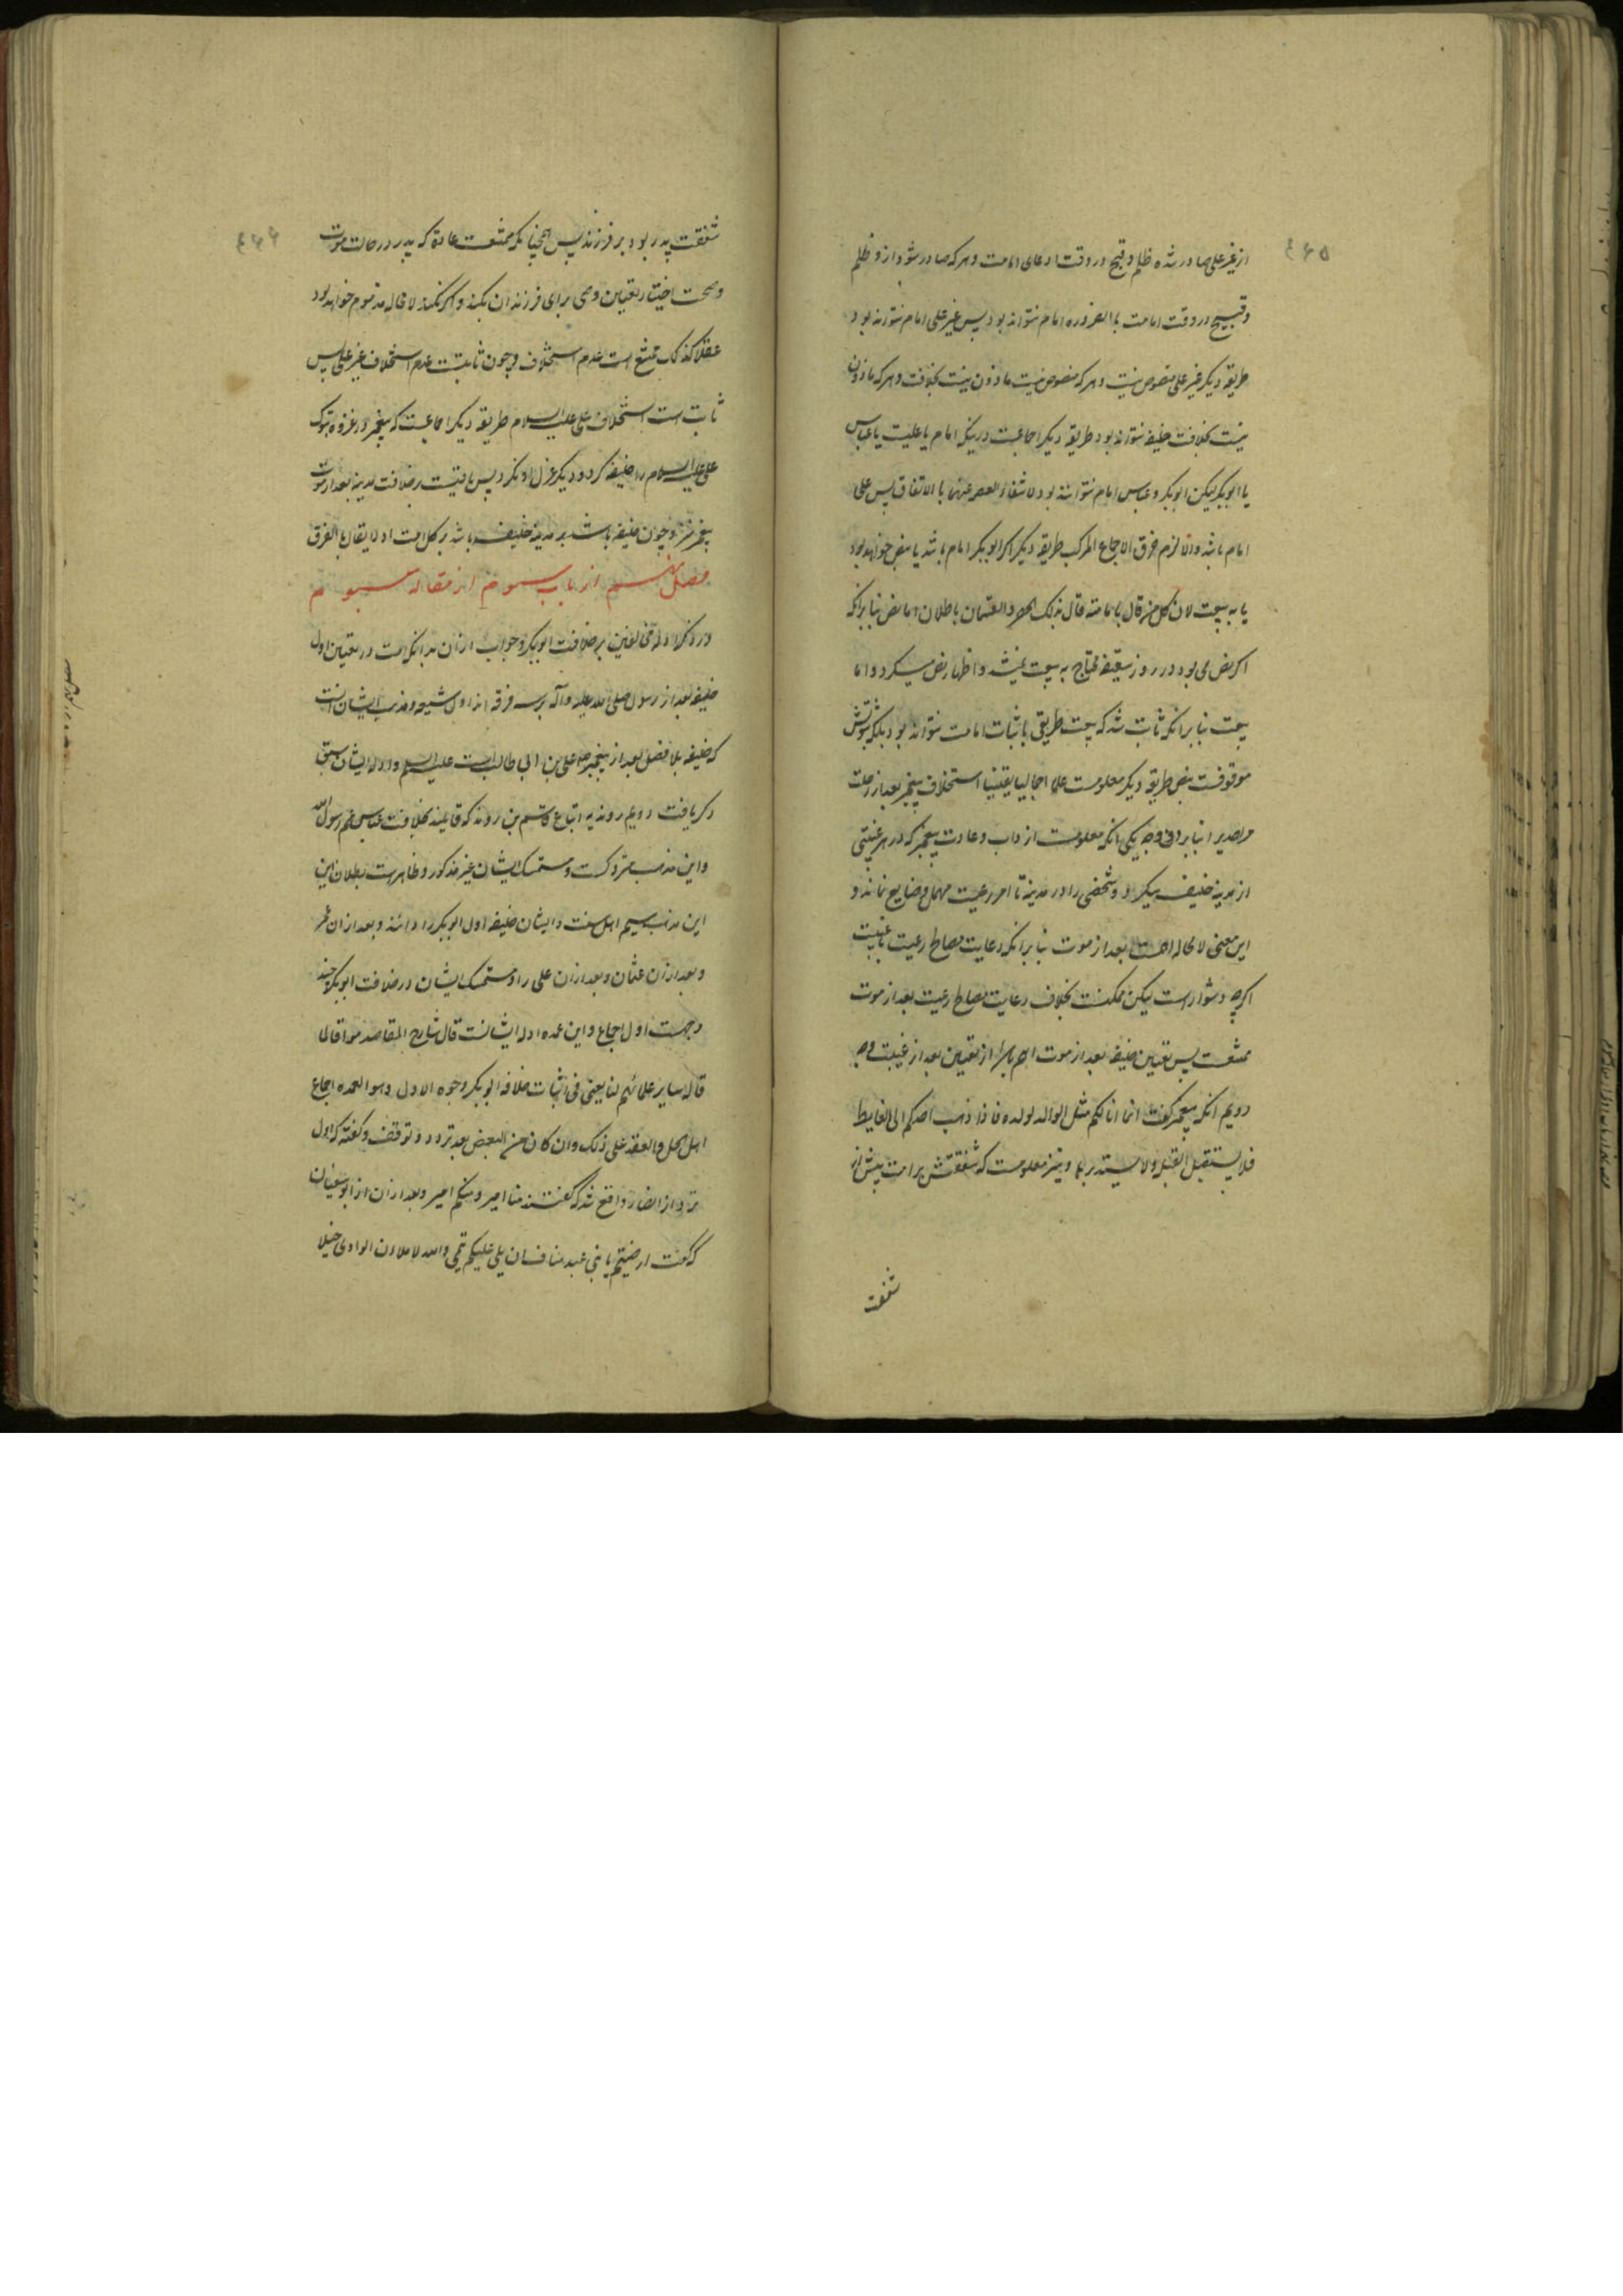 ۴۶۵
از غیر علی صادر شده ظلم و قبح در وقت ادعای امامت و هر که صادر شود ازو ظلم
و قبیح در وقت امامت بالضروره امام نتواند بود پس غیر علی امام نتواند بود
طریقه دیگر غیر علی منصوص نیست و هر که منصوص نیست ماذون نیست بخلافت و هر که ماذون
نیست بخلافت خلیفه نتواند بود طریقه دیگر اجماعست درینکه امام یا علیست یا عباس
یا ابوبکر لیکن ابوبکر و عباس امام نتوانند بود لانتفاء العصمة عنهما بالاتفاق پس علی
امام باشد والا لزم خرق الاجماع المرکب طریقه دیگر اگر ابوبکر امام باشد یا بنص خواهد بود
یا به بیعت لان کل من قال بامامته قال بذلک الحصر والقسمان باطلان اما نص بنابرانکه
اگر نص می بود در روز سقیفه محتاج به بیعت نمیشد و اظهار نص میکرد و اما
بیعت بنابرانکه ثابت شد که بیعت طریق باثبات امامت نتواند بود بلکه ثبوتش
موقوفست بنص طریقه دیگر معلومست علما اجمالیا یقینیا استخلاف پیغمبر بعد از رحلت
مر احدی را بنابر دو وجه یکی انکه معلومست از داب و عادت پیغمبر که در هر غیبتی
از مدینه خلیفه میکرد شخصی را در مدینه تا امر رعیت مهمل و ضایع نماند و
این معنی لامحاله اهمست بعد از موت بنابرانکه رعایت مصالح رعیت با غیبت
اگرچه دشوارست لیکن ممکنست بخلاف رعایت مصالح رعیت بعد از موت
ممتنعست پس تعیین خلیفه بعد از موت اهم باشد از تعیین بعد از غیبت وجه
دویم انکه پیغمبر گفت انما انا لکم مثل الوالد لولده فاذا ذهب احدکم الی الغایط
فلا یستقبل القبلة ولا یستدبرها و نیز معلومست که شفقتش بر امت بیش از
شفقت
۴۶۶
شفقت پدر بود بر فرزند پس همچنانکه ممتنعست عادة که پدر در حالت موت
و صحت اختیار تعیین وصی برای فرزندان نکند و اگر نکند لامحاله مذموم خواهد بود
عقلا کذلک ممتنع است عدم استخلاف و چون ثابتست عدم استخلاف غیر علی پس
ثابت است استخلاف علی علیه السلام طریقه دیگر اجماعست که پیغمبر در غزوه تبوک
علی علیه السلام را خلیفه کرد و دیگر عزل او نکرد پس باقیست بر خلافت مدینه بعد از موت
پیغمبر نیز و چون خلیفه باشد بر مدینه خلیفه باشد بر کل امت اذ لا یقال بالفرق
فصل ششم از باب سیوم از مقاله سیوم
در ذکر ادله مخالفین بر خلافت ابوبکر و جواب ازان بدانکه امت در تعیین اول
خلیفه بعد از رسول صلی الله علیه و آله بر سه فرقه اند اول شیعه و مذهب ایشان انست
که خلیفه بلافصل بعد از پیغمبر علی بن ابی طالب است علیه السلام و ادله ایشان سبق
ذکر یافت دویم روندیه اتباع قاسم بن روند که قایلند بخلافت عباس عم رسول الله
و این مذهب متروکست و متمسک ایشان غیر مذکور و ظاهرست بطلان این
این مذهب سیم اهل سنت و ایشان خلیفه اول ابوبکر را دانند و بعد ازان عمر
و بعد ازان عثمان و بعد ازان علی را و متمسک ایشان در خلافت ابوبکر چند
وجهست اول اجماع و این عمده ادله ایشانست قال شارح المقاصد موافقا لما
قاله سایر علمائهم لنا یعنی فی اثبات خلافة ابوبکر وجوه الاول و هو العمده اجماع
اهل الحل والعقد علی ذلک و ان کان من البعض بعد تردد و توقف و گفته که اول
تردد از انصار واقع شد که گفتند منا امیر و منکم امیر و بعد ازان از ابوسفیان
که گفت ارضیتم یا بنی عبد مناف ان یلی علیکم تیمی والله لاملان الوادی خیلا